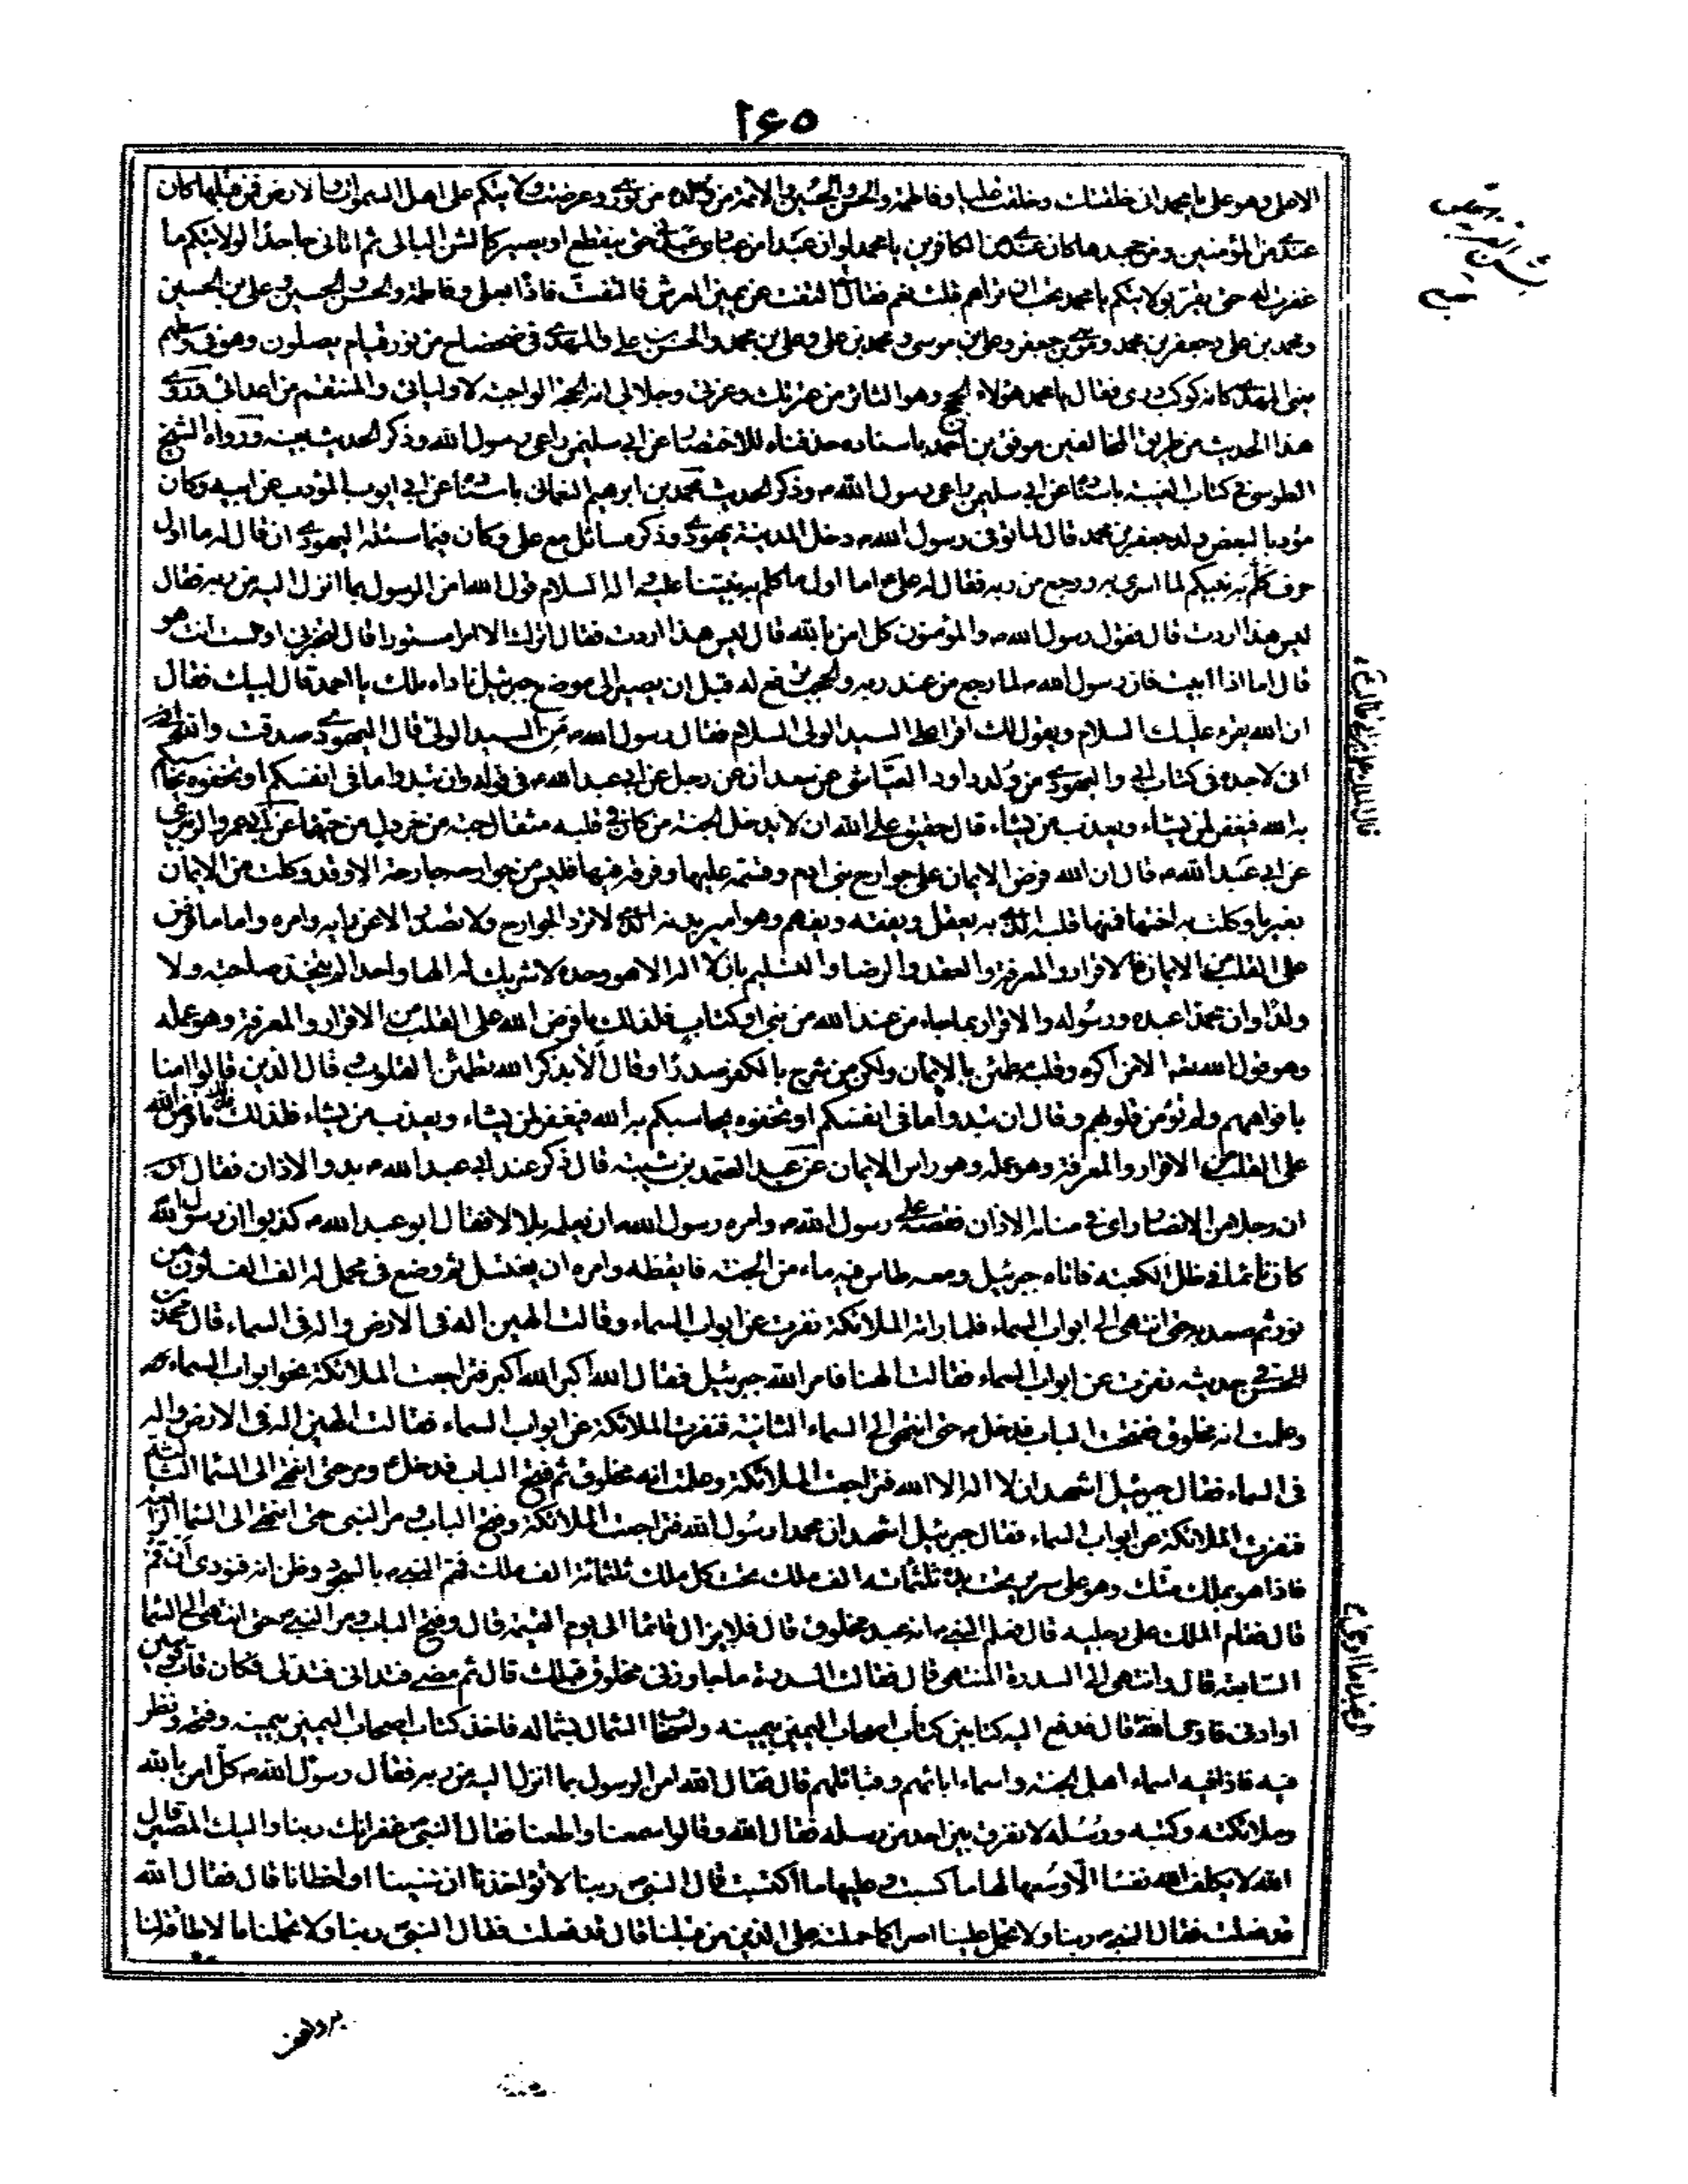 ٢٦٥
الاعلى وهو على يا محمد انى خلقتك وخلقت عليا وفاطمة والحسن والحسين والائمة من ولده من نورى وعرضت ولايتكم على اهل السموات والارض فمن قبلها كان
عندى من المؤمنين ومن جحدها كان عندى من الكافرين يا محمد لو ان عبدا من عبادى عبدنى حتى ينقطع او يصير كالشن البالى ثم اتانى جاحدا لولايتكم ما
غفرت له حتى يقر بولايتكم يا محمد تحب ان تراهم قلت نعم فقال التفت عن يمين العرش فالتفت فاذا بعلى وفاطمة والحسن والحسين وعلى بن الحسين
ومحمد بن على وجعفر بن محمد وموسى بن جعفر وعلى بن موسى ومحمد بن على وعلى بن محمد والحسن بن على والمهدى فى ضحضاح من نور قيام يصلون وهو فى وسطهم
يعنى المهدى كانه كوكب درى فقال يا محمد هؤلاء الحجج وهو الثائر من عترتك وعزتى وجلالى انه الحجة الواجبة لاوليائى والمنتقم من اعدائى وروى
هذا الحديث من طريق المخالفين موفق بن احمد باسناده حذفناه للاختصار عن ابى سليمن راعى رسول الله وذكر الحديث بعينه ورواه الشيخ
الطوسى فى كتاب الغيبة باسناده عن ابى سليمن راعى رسول الله ص وذكر الحديث محمد بن ابرهيم النعمانى باسناده عن ابى ايوب المؤدب عن ابيه وكان
مؤدبا لبعض ولد جعفر بن محمد قال لما توفى رسول الله ص دخل المدينة يهودى وذكر مسائل مع على وكان فيما سئله اليهودى ان قال له ما اول
حرف كلم به نبيكم لما اسرى به ورجع من ربه فقال له على ع اما اول ما كلم به نبينا عليه واله السلام قول الله امن الرسول بما انزل اليه من ربه فقال
ليس هذا اردت قال فقول رسول الله ص والمؤمنون كل امن بالله قال ليس هذا اردت فقال اترك الامر مستورا قال لتخبرنى اولست انت هو
قال اما اذا ابيت فان رسول الله ص لما رجع من عند ربه والحجب ترفع له قبل ان يصير الى موضع جبرئيل ناداه ملك يا احمد قال لبيك فقال
ان الله يقرء عليك السلام ويقول لك اقرا على السيد الولى السلام فقال رسول الله ص من السيد الولى قال اليهودى صدقت والله
انى لاجده فى كتاب ابى واليهودى من ولد داود العياشى عن سعدان عن رجل عن ابى عبد الله ع فى قوله وان تبدوا ما فى انفسكم او تخفوه يحاسبكم
به الله فيغفر لمن يشاء ويعذب من يشاء قال حقيق على الله ان لا يدخل الجنة من كان فى قلبه مثقال حبة من خردل من حبهما عن ابى عمرو الزبيرى
عن ابى عبد الله ع قال ان الله فرض الايمان على جوارح بنى ادم وقسمه عليها وفرقه فيها فليس من جوارحه جارحة الا وقد وكلت من الايمان
بغير ما وكلت به اختها فمنها قلبه الذى به يعقل ويفقه ويفهم وهو امير بدنه الذى لا ترد الجوارح ولا تصدر الا عن رايه وامره واما ما فرض
على القلب من الايمان فالاقرار والمعرفة والعقد والرضا والتسليم بان لا اله الا هو وحده لا شريك له الها واحدا لم يتخذ صاحبة ولا
ولدا وان محمدا عبده ورسوله والاقرار بما جاء من عند الله من نبى او كتاب فلذلك ما فرض الله على القلب من الاقرار والمعرفة وهو عمله
وهو قول الله تعالى الا من اكره وقلبه مطمئن بالايمان ولكن من شرح بالكفر صدرا وقال الا بذكر الله تطمئن القلوب وقال الذين قالوا امنا
بافواههم ولم تؤمن قلوبهم وقال ان تبدوا ما فى انفسكم او تخفوه يحاسبكم به الله فيغفر لمن يشاء ويعذب من يشاء فلذلك ما فرض الله
على القلب من الاقرار والمعرفة وهو عمله وهو راس الايمان عن عبد الصمد بن شيبة قال ذكر عند ابى عبد الله ع بدو الاذان فقال
ان رجلا من الانصار راى فى منامه الاذان فقصه على رسول الله ص وامره رسول الله ان يعلمه بلالا فقال ابو عبد الله ع كذبوا ان رسول الله
كان نائما فى ظل الكعبة فاتاه جبرئيل ومعه طاس فيه ماء من الجنة فايقظه وامره ان يغتسل ثم وضع فى محمل له الف الف لون من
نور ثم صعد به حتى انتهى الى ابواب السماء فلما راته الملائكة نفرت عن ابواب السماء وقالت الهين اله فى الارض واله فى السماء قال محمد بن
الحسن فى حديثه نفرت عن ابواب السماء فقالت الهنا فامر الله جبرئيل فقال الله اكبر الله اكبر فتراجعت الملائكة نحو ابواب السماء
وعلمت انه مخلوق ففتحت الباب فدخل ص حتى انتهى الى السماء الثانية فنفرت الملائكة عن ابواب السماء فقالت الهين اله فى الارض واله
فى السماء فقال جبرئيل اشهد ان لا اله الا الله فتراجعت الملائكة وعلمت انه مخلوق ثم فتح الباب فدخل ص ومر حتى انتهى الى السماء الثالثة
فنفرت الملائكة عن ابواب السماء فقال جبرئيل اشهد ان محمدا رسول الله فتراجعت الملائكة وفتح الباب ومر النبى حتى انتهى الى السماء الرابعة
فاذا هو بملك متك وهو على سرير تحت يده ثلثمائة الف ملك تحت كل ملك ثلثمائة الف ملك فهم النبى ص بالسجود وظن انه فنودى ان قم
قال فقام الملك على رجليه قال فعلم النبى ص انه عبد مخلوق قال فلا يزال قائما الى يوم القيمة قال وفتح الباب ومر النبى ص حتى انتهى الى السماء
السابعة قال وانتهى الى السدرة المنتهى قال فقالت السدرة ما جاوزنى مخلوق قبلك قال ثم مضى فتدانى فتدلى فكان قاب قوسين
او ادنى فاوحى الله قال فدفع اليه كتابين كتاب اصحاب اليمين بيمينه واصحاب الشمال بشماله فاخذ كتاب اصحاب اليمين بيمينه وفتحه ونظر
فيه فاذا فيه اسماء اهل الجنة واسماء ابائهم وقبائلهم قال فقال الله امن الرسول بما انزل اليه من ربه فقال رسول الله ص كل امن بالله
وملائكته وكتبه ورسله لا نفرق بين احد من رسله فقال الله وقالوا سمعنا واطعنا فقال النبى ص غفرانك ربنا واليك المصير قال
الله لا يكلف الله نفسا الا وسعها لها ما كسبت وعليها ما اكتسبت قال النبى ص ربنا لا تؤاخذنا ان نسينا او اخطانا قال فقال الله
قد فعلت فقال النبى ص ربنا ولا تحمل علينا اصرا كما حملته على الذين من قبلنا قال قد فعلت فقال النبى ص ربنا ولا تحملنا ما لا طاقة لنا